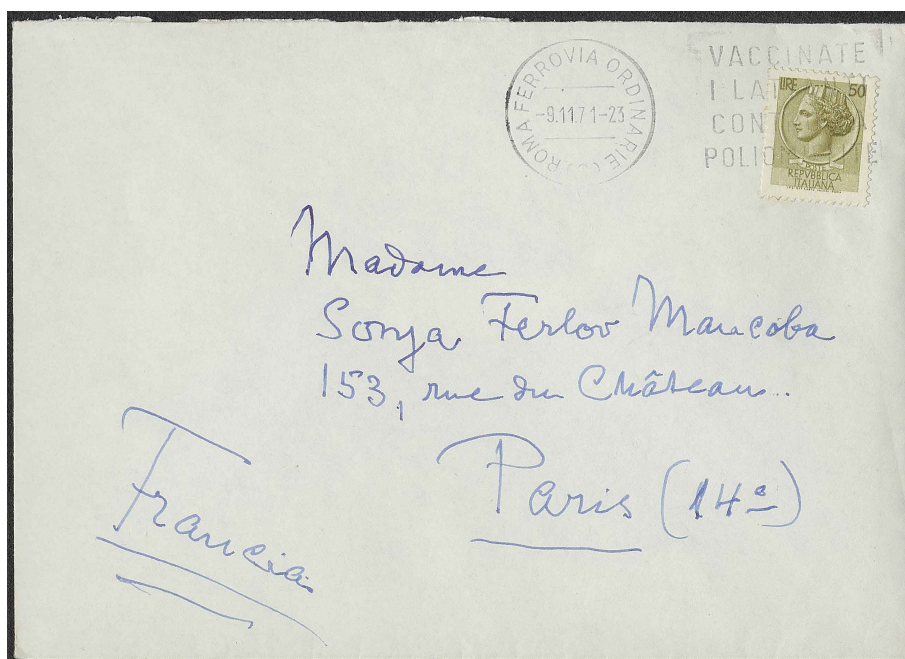 ROMA FERROVIA ORDINARIE
-9.11.71-23
VACCINATE
I
CON
LIRE 50
POSTE
REPVBBLICA
ITALIANA
Madame
Sonja Ferlov Mancoba
153, rue du Château.
Paris (14e)
Francia